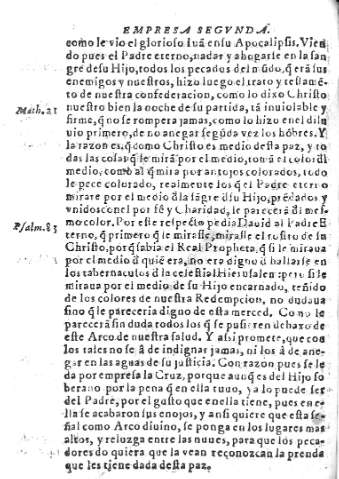 EMPRESA SEGVNDA.
como le vio el glorioso Iuã en su Apocalipsis. Vien
do pues el Padre eterno, nadar y ahogarse en la san
gre de su Hijo, todos los pecados del mũdo, q̃ erã sus
enemigos y nuestros, hizo luego el trato y testamẽ
to de nuestra confederacion, como lo dixo Christo
Math. 21
nuestro bien la noche de su partida, tã inuiolable y
firme, q̃ no se rompera jamas, como lo hizo en el dilu
uio primero, de no anegar segũda vez los hõbres. Y
la razon es, q̃ como Christo es medio desta paz, y to
das las cosas q̃ se mirã por el medio, tomã el color dl
medio, como al q̃ mira por antojos colorados, todo
le pece colorado, realmente los q̃ el Padre eterno
mirare por el medio d̃ la sãgre d̃ su Hijo, pr̃dados y
vnidos cõ el por fê y Charidad, le pareceràd̃l mes-
mo color. Por este respecto pedia Dauid al Padre e
Psalm. 83
terno, q̃ primero q̃ le mirasse, mirasse el rostro de su
Christo, porq̃ sabia el Real Propheta, q̃ si le miraua
por el medio d̃ quiẽ era, no era digno d̃ hallarse en
los tabernaculos d̃ la celestial Hierusalen: pero si le
miraua por el medio de su Hijo encarnado, teñido
de los colores de nuestra Redempcion, no dudaua
sino q̃ le pareceria digno de esta merced. Como le
pareceràn sin duda todos los q̃ se pusieren debaxo de
este Arco de nuestra salud. Y assi promete, que con
los tales no se â de indignar jamas, ni los â de ane-
gar en las aguas de su justicia. Con razon pues se le
da por empresa la Cruz, porque aunq̃ es del Hijo so
berano por la pena q̃ en ella tuuo, ya lo puede ser
del Padre, por el gusto que en ella tiene, pues en e-
lla se acabaron sus enojos, y ansi quiere que esta se-
ñal como Arco diuino, se ponga en los lugares mas
altos, y reluzga entre las nuues, para que los peca-
dores do quiera que la vean reconozcan la prenda
que les tiene dada desta paz.